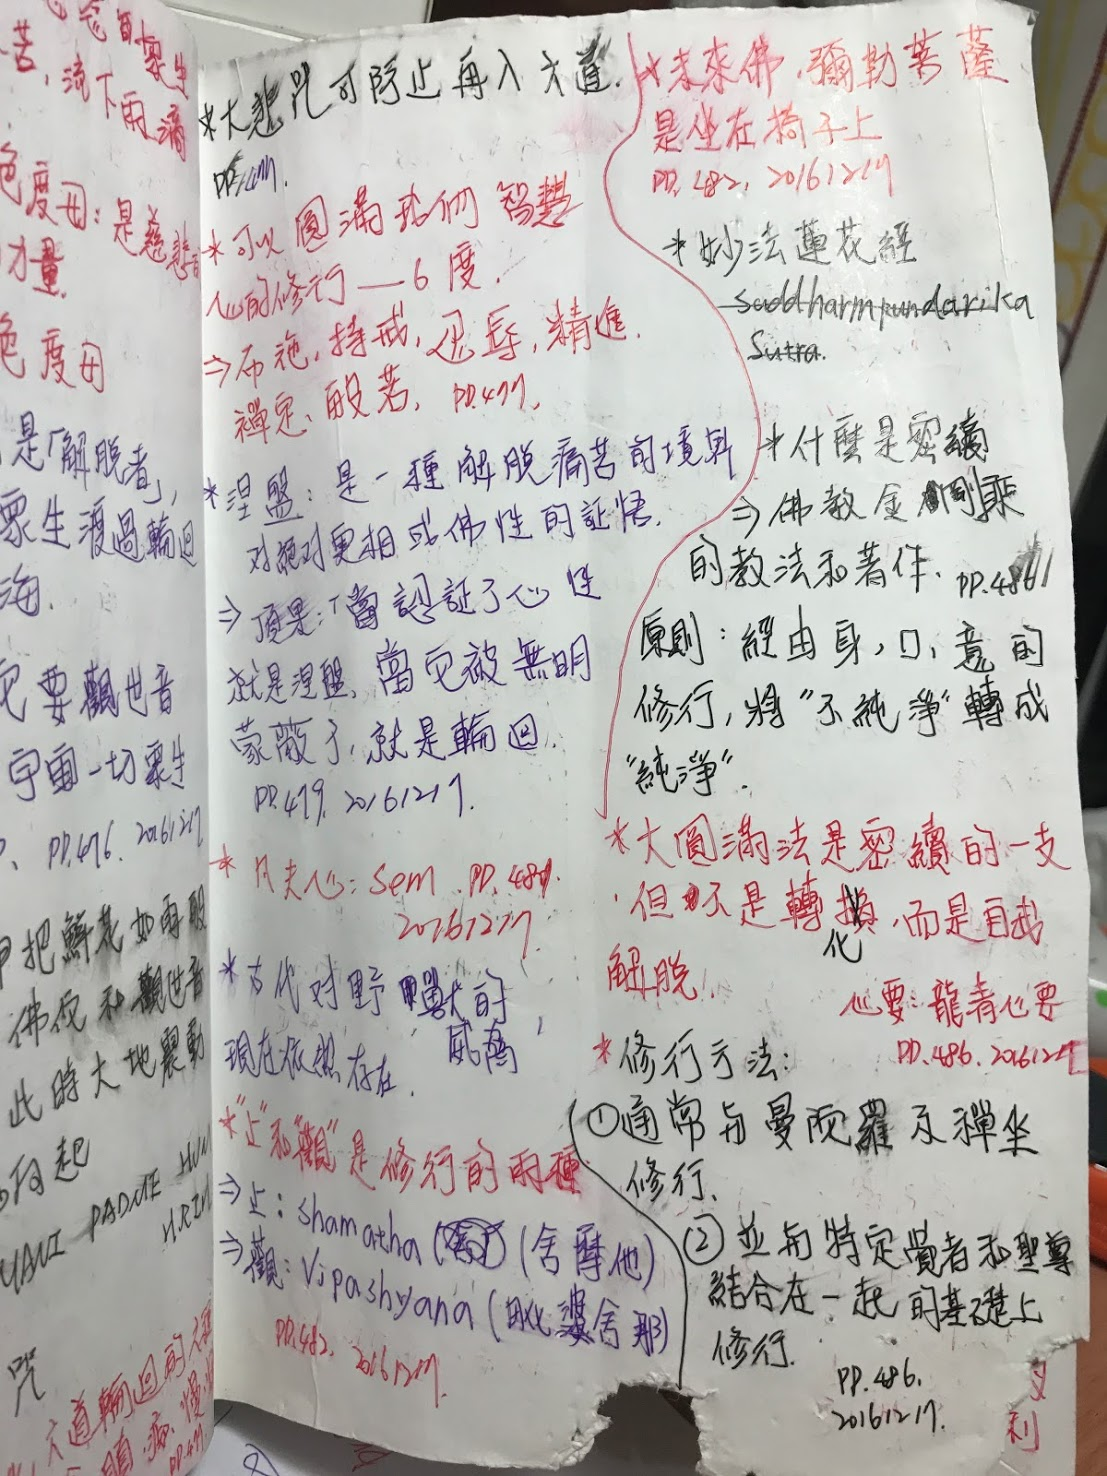 苦，流下雨滴
色度母：是慈悲
力量
色度母
是「解脫者」，
眾生渡過輪迴
海.
它要觀世音
宇宙一切眾生
PP.476. 20161217
把鮮花如雨般
佛陀和觀世音
此時大地震動
PADME HUM
HRIH
咒
六道輪迴的
*大悲咒可防止再入六道.
PP.477.
*可以圓滿我們智慧
心的修行——6度.
⇒布施,持戒,忍辱,精進.
禪定、般若, PP.477.
*涅盤：是一種解脫痛苦的境界
对絕对真相或佛性的証悟.
⇒頂果：「當認証了心性
就是涅盤,當它被無明
蒙蔽了,就是輪迴.
PP.479. 20161217.
*凡夫心: sem. PP.481.
20161217.
*古代对野獸的
威脅,
現在依然存在.
*"止"和"觀"是修行的兩種
⇒止: shamatha (舍摩他)
⇒觀: Vipashyana (毗婆舍那)
PP.482. 20161217.
*未來佛,彌勒菩薩
是坐在椅子上
PP.482, 20161217
*妙法蓮花經
saddharmpundarika
Sutra.
*什麼是密續
⇒佛教金剛乘
的教法和著作. PP.486
原則：經由身,口,意的
修行,將"不純淨"轉成
"純淨".
*大圓滿法是密續的一支
但不是轉化,而是自我
解脫!
心要：龍青心要
PP.486. 20161217
*修行方法:
①通常与曼陀羅及禪坐
修行.
②並与特定覺者和聖尊
結合在一起的基礎上
修行.
PP.486.
20161217.
利